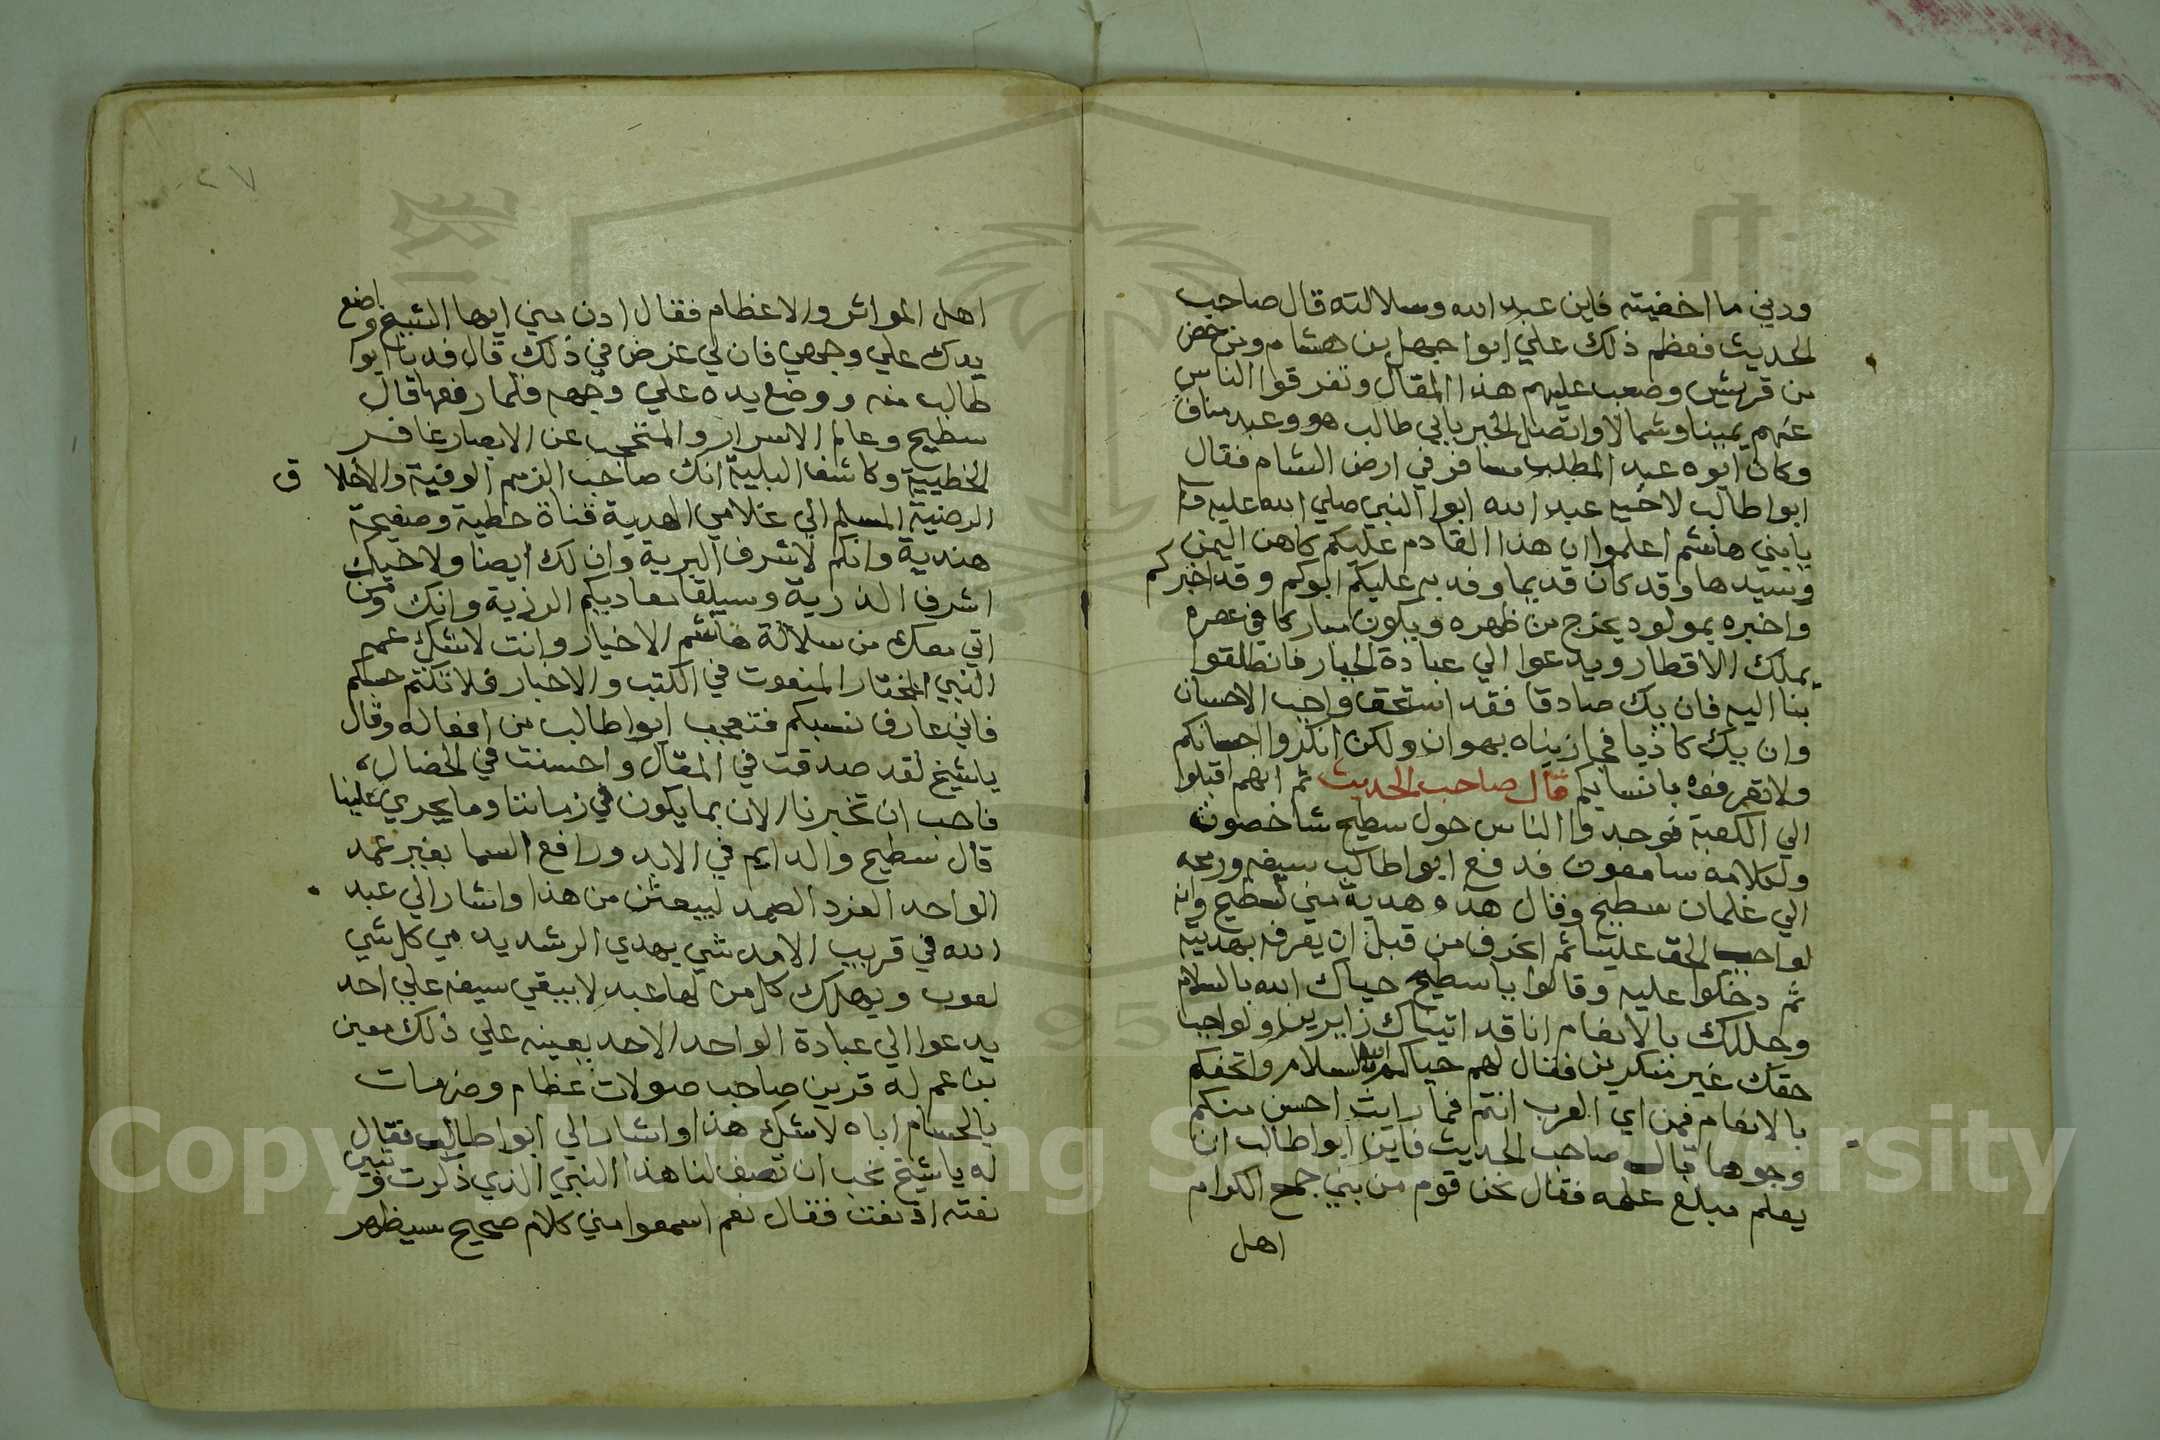 وديني ما اخفيته فاين عبد الله وسلالته قال صاحب
الحديث فعظم ذلك علي ابوا جهل بن هشام ومن حضر
من قريش وصعب عليهم هذا المقال وتفرقوا الناس
عنهم يمينا وشمالا واتصل الخبر بابي طالب هو وعبد مناف
وكان ابوه عبد المطلب مسافر في ارض الشام فقال
ابوا طالب لاخيه عبد الله ابوا النبي صلي الله عليه وسلم
يا بني هاشم اعلموا ان هذا القادم عليكم كاهن اليمن
وسيدها وقد كان قديما وفد به عليكم ابوكم وقد اخبركم
واخبره بمولود يخرج من ظهره ويكون مباركا في عصره
يملك الاقطار ويدعوا الي عبادة الجبار فانطلقوا
بنا اليه فان يك صادقا فقد استحق واجب الاحسان
وان يك كاذبا فجازيناه بهوان ولكن انكروا احسانكم
ولا تعرفوه بانسابكم قال صاحب الحديث ثم انهم اقبلوا
الي الكعبة فوجدوا الناس حول سطيح شاخصون
ولكلامه سامعون فدفع ابوا طالب سيفه ورمحه
الي غلمان سطيح وقال هذه هدية مني لسطيح وانه
لواجب الحق علينا ثم انحرف من قبل ان يعرفه بهديته
ثم دخلوا عليه وقالوا يا سطيح حياك الله بالسلام
وجللك بالانعام انا قد اتيناك زايرين ولواجب
حقك غير منكرين فقال لهم حياكم الله بالسلام واتحفكم
بالانعام فمن اي العرب انتم فما رايت احسن منكم
وجوها قال صاحب الحديث فاين ابوا طالب ان
يعلم مبلغ علمه فقال نحن قوم من بني جمح الكرام
اهل
٢٧
اهل المواثر والاعظام فقال ادن مني ايها الشيخ وضع
يدك علي وجهي فان لي غرض في ذلك قال فدنا ابوا
طالب منه ووضع يده علي وجهه فلما رفعها قال
سطيح وعالم الاسرار والمتحجب عن الابصار غافر
الخطيية وكاشف البلية انك صاحب الذمم الوفية والاخلاق
الرضية المسلم الي غلامي الهدية قناة خطية وصفيحة
هندية وانكم لاشرف البرية وان لك ايضا ولاخيك
اشرف الذرية وسيلقا معاديكم الرزية وانك ومن
اتي معك من سلالة هاشم الاخيار وانت لا شك عم
النبي المختار المنعوت في الكتب والاخبار فلا تكتم حسبكم
فاني عارف نسبكم فتعجب ابوا طالب من افعاله وقال
يا شيخ لقد صدقت في المقال واحسنت في الخصال
فاحب ان تخبرنا الان بما يكون في زماننا وما يجري علينا
قال سطيح والدايم في الابد ورافع السما بغير عمد
الواحد الفرد الصمد ليبعثن من هذا واشار الي عبد
الله في قريب الامد نبي يهدي الرشد يدمي كل شي
لعوب ويهلك كل من لها عبد لا يبقي سيفه علي احد
يدعوا الي عبادة الواحد الاحد يعينه علي ذلك معين
بن عم له قرين صاحب صولات عظام وضربات
بالحسام اباه لا شك هذا واشار الي ابوا طالب فقال
له يا شيخ نحب ان تصف لنا هذا النبي الذي ذكرت وتبين
نعته اذ نعت فقال نعم اسمعوا مني كلام صحيح سيظهر
Copyright © King Saud University